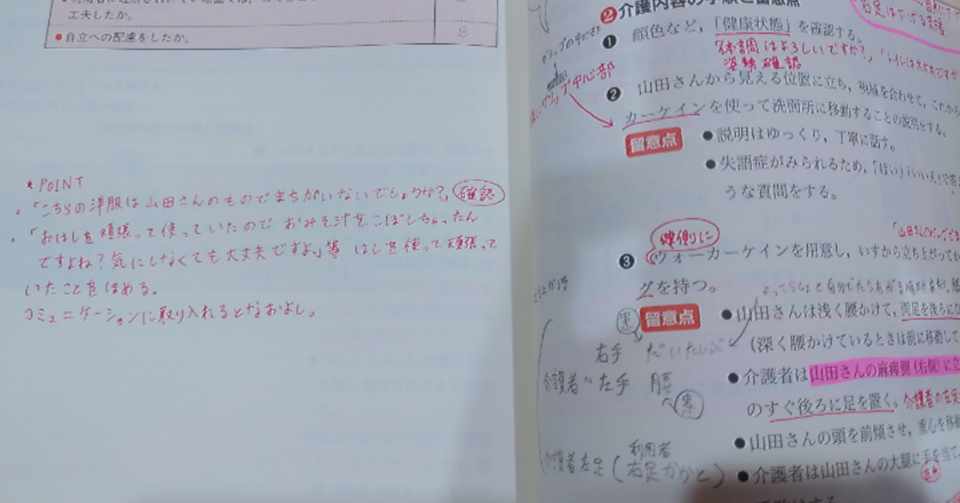 工夫したか。
●自立への配慮をしたか。
8
*POINT
・「こちらの洋服は山田さんのものでまちがいないでしょうか?」確認
・「おはしを頑張って使っていたので おみそ汁をこぼしちゃったん
ですよね?気にしなくても大丈夫ですよ」等 はしを使って頑張って
いたことをほめる。
コミュニケーションに取り入れるとなおよし。
❷介護内容の手順と留意点
❶ 顔色など、「健康状態」を確認する。
体調はよろしいですか?」
姿勢確認
中心部
❷ 山田さんから見える位置に立ち、視線を合わせて、これから
カーケインを使って洗面所に移動することの説明をする。
留意点 ●説明はゆっくり、丁寧に話す。
●失語症がみられるため、「はい/いいえ」で答
うな質問をする。
健側に
❸ ウォーカーケインを用意し、いすから立ち上がっても
を持つ。
留意点 ●山田さんは浅く腰かけて、両足を後ろに
(深く腰かけているときは前に移動して
右手 だいたいぶ
介護者 左手 膝
裏
●介護者は山田さんの麻痺側(右側)に立
のすぐ後ろに足を置く。
●山田さんの頭を前傾させ、重心を移動
介護者左足(利用者
右足かかと)
●介護者は山田さんの大腿に手を当て